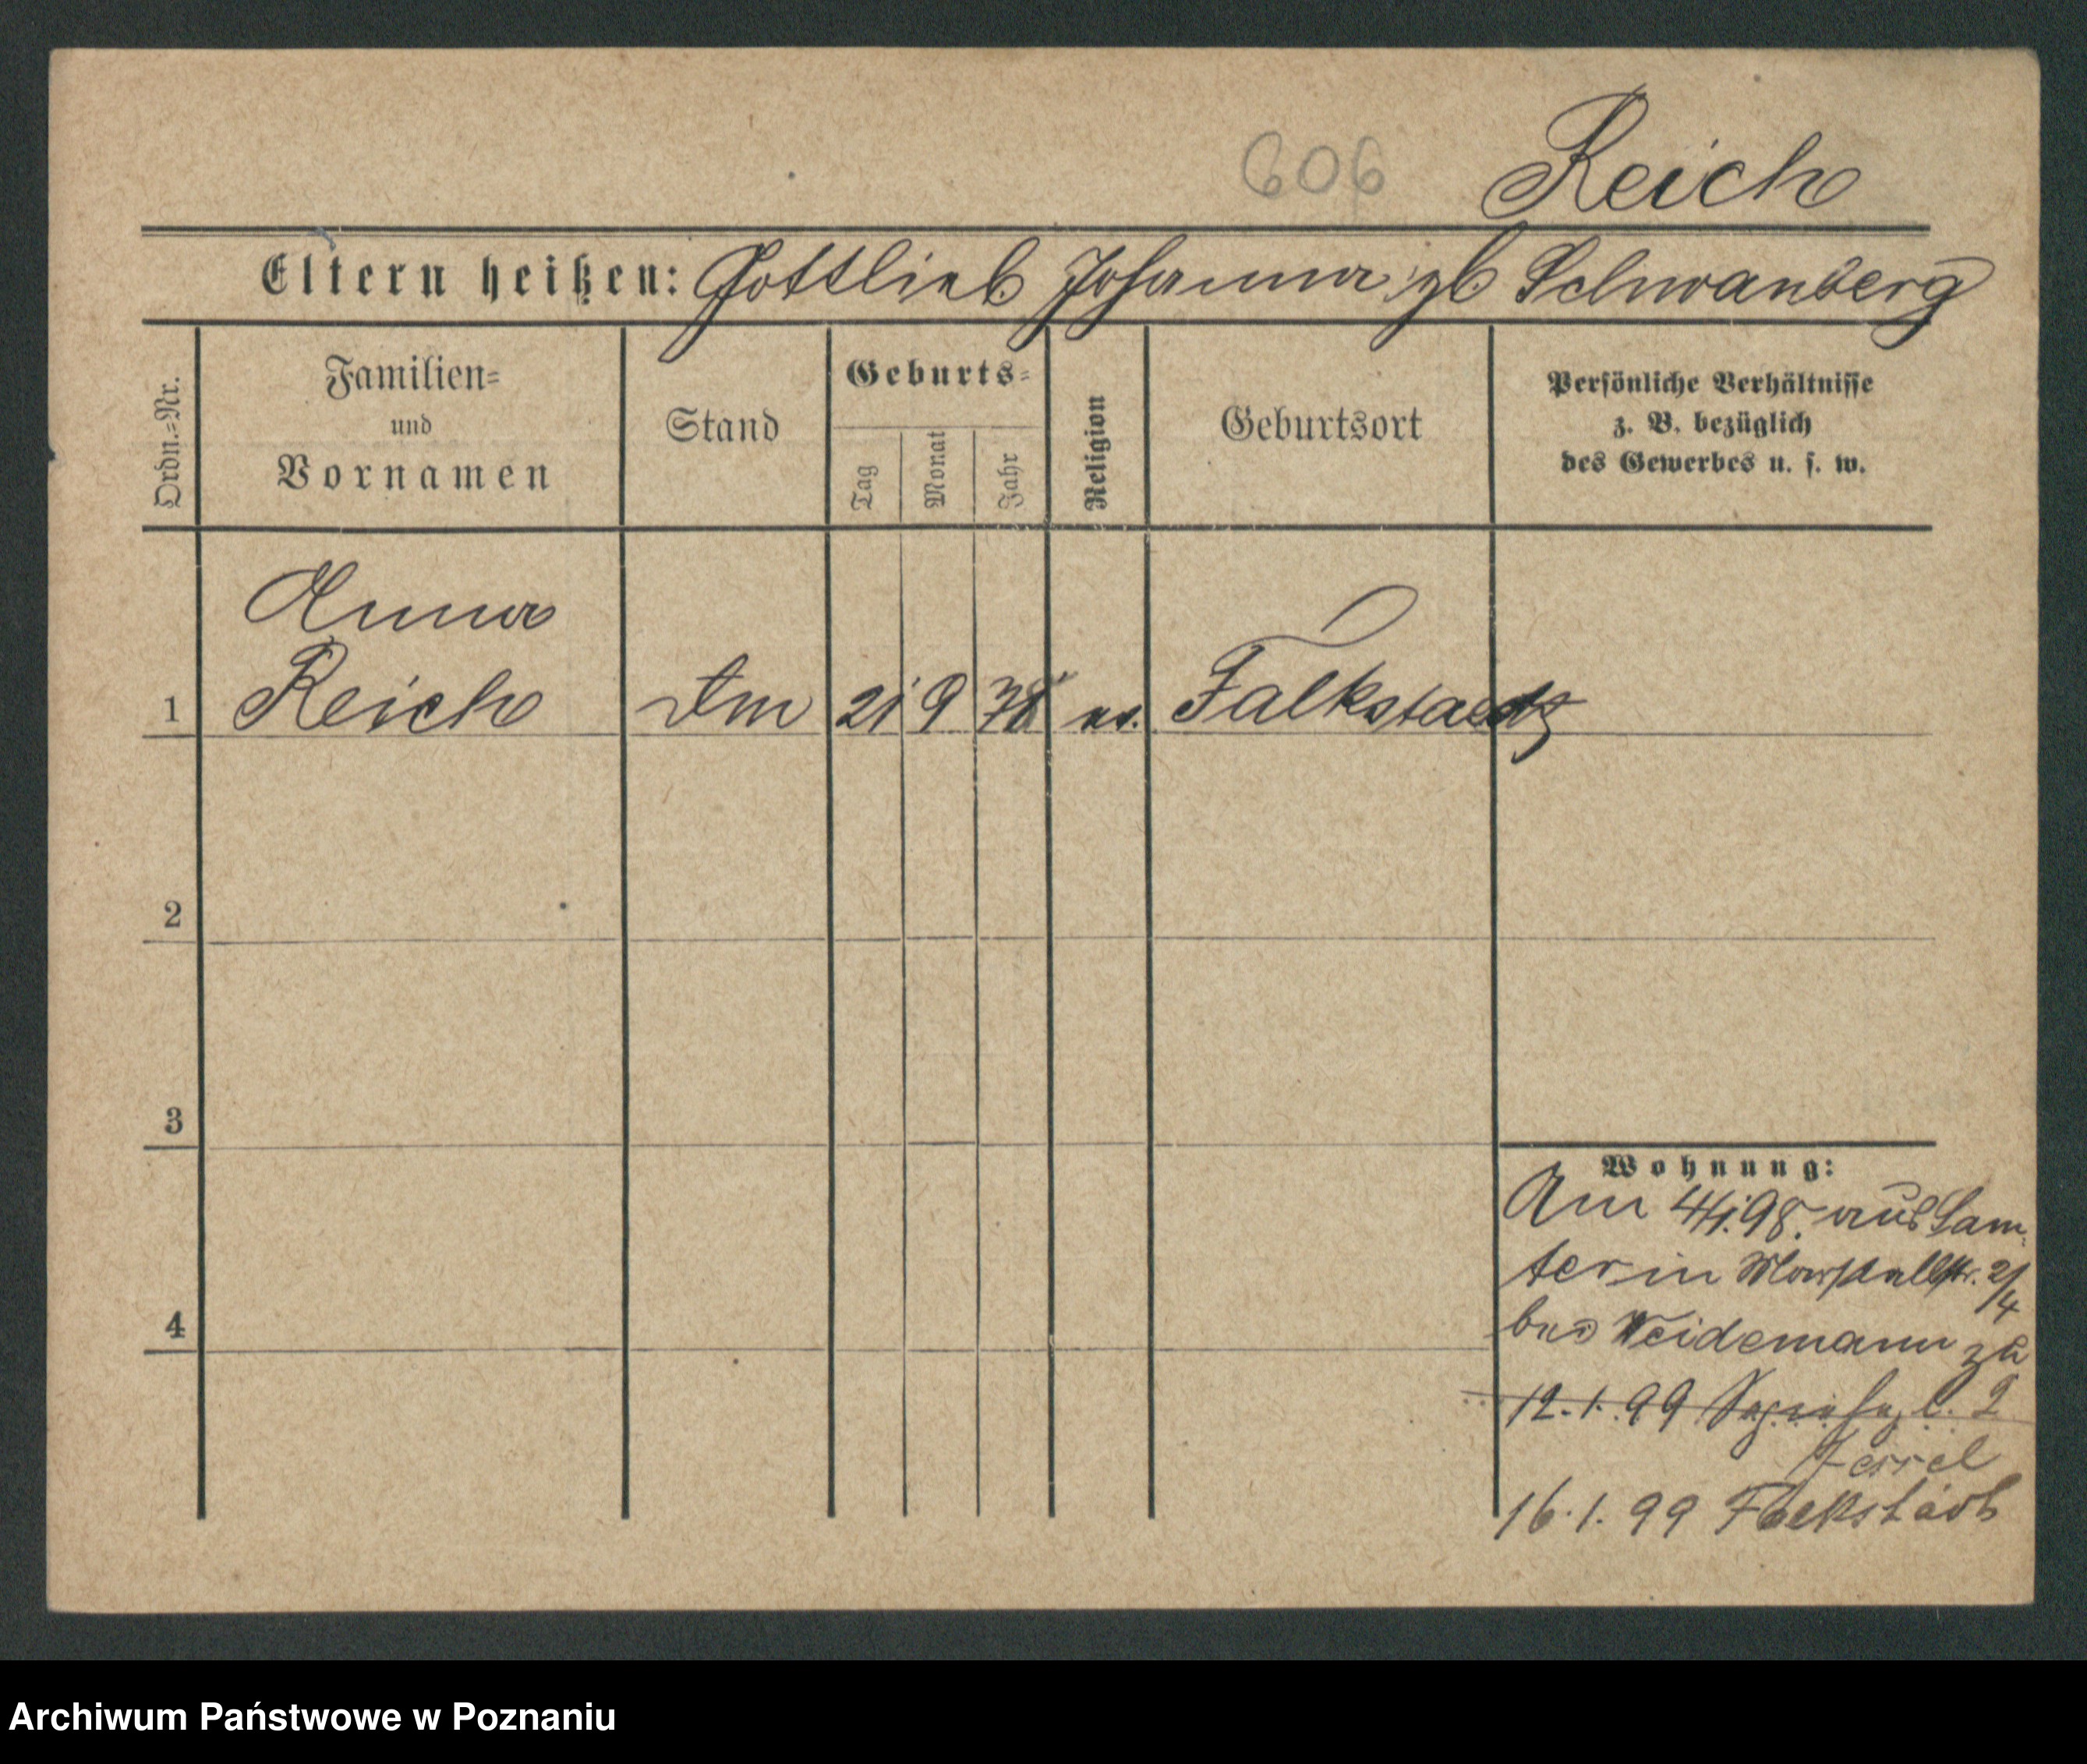 606 Reich
Eltern heißen: Gottlieb Johanna gb Schwanberg
Ordn.=Nr.
Familien=
und
Vornamen
Stand
Geburts=
Tag
Monat
Jahr
Religion
Geburtsort
Persönliche Verhältnisse
z. B. bezüglich
des Gewerbes u. s. w.
Anna
1 Reich Dm 21 9 78 ev. Falkstaedt
2
3
4
Wohnung:
Am 4/1.98. aus Sam-
ter in Marstallstr. 2/4
bei Weidemann zu
12.1.99 2
16.1.99 Falkstädt
Archiwum Państwowe w Poznaniu